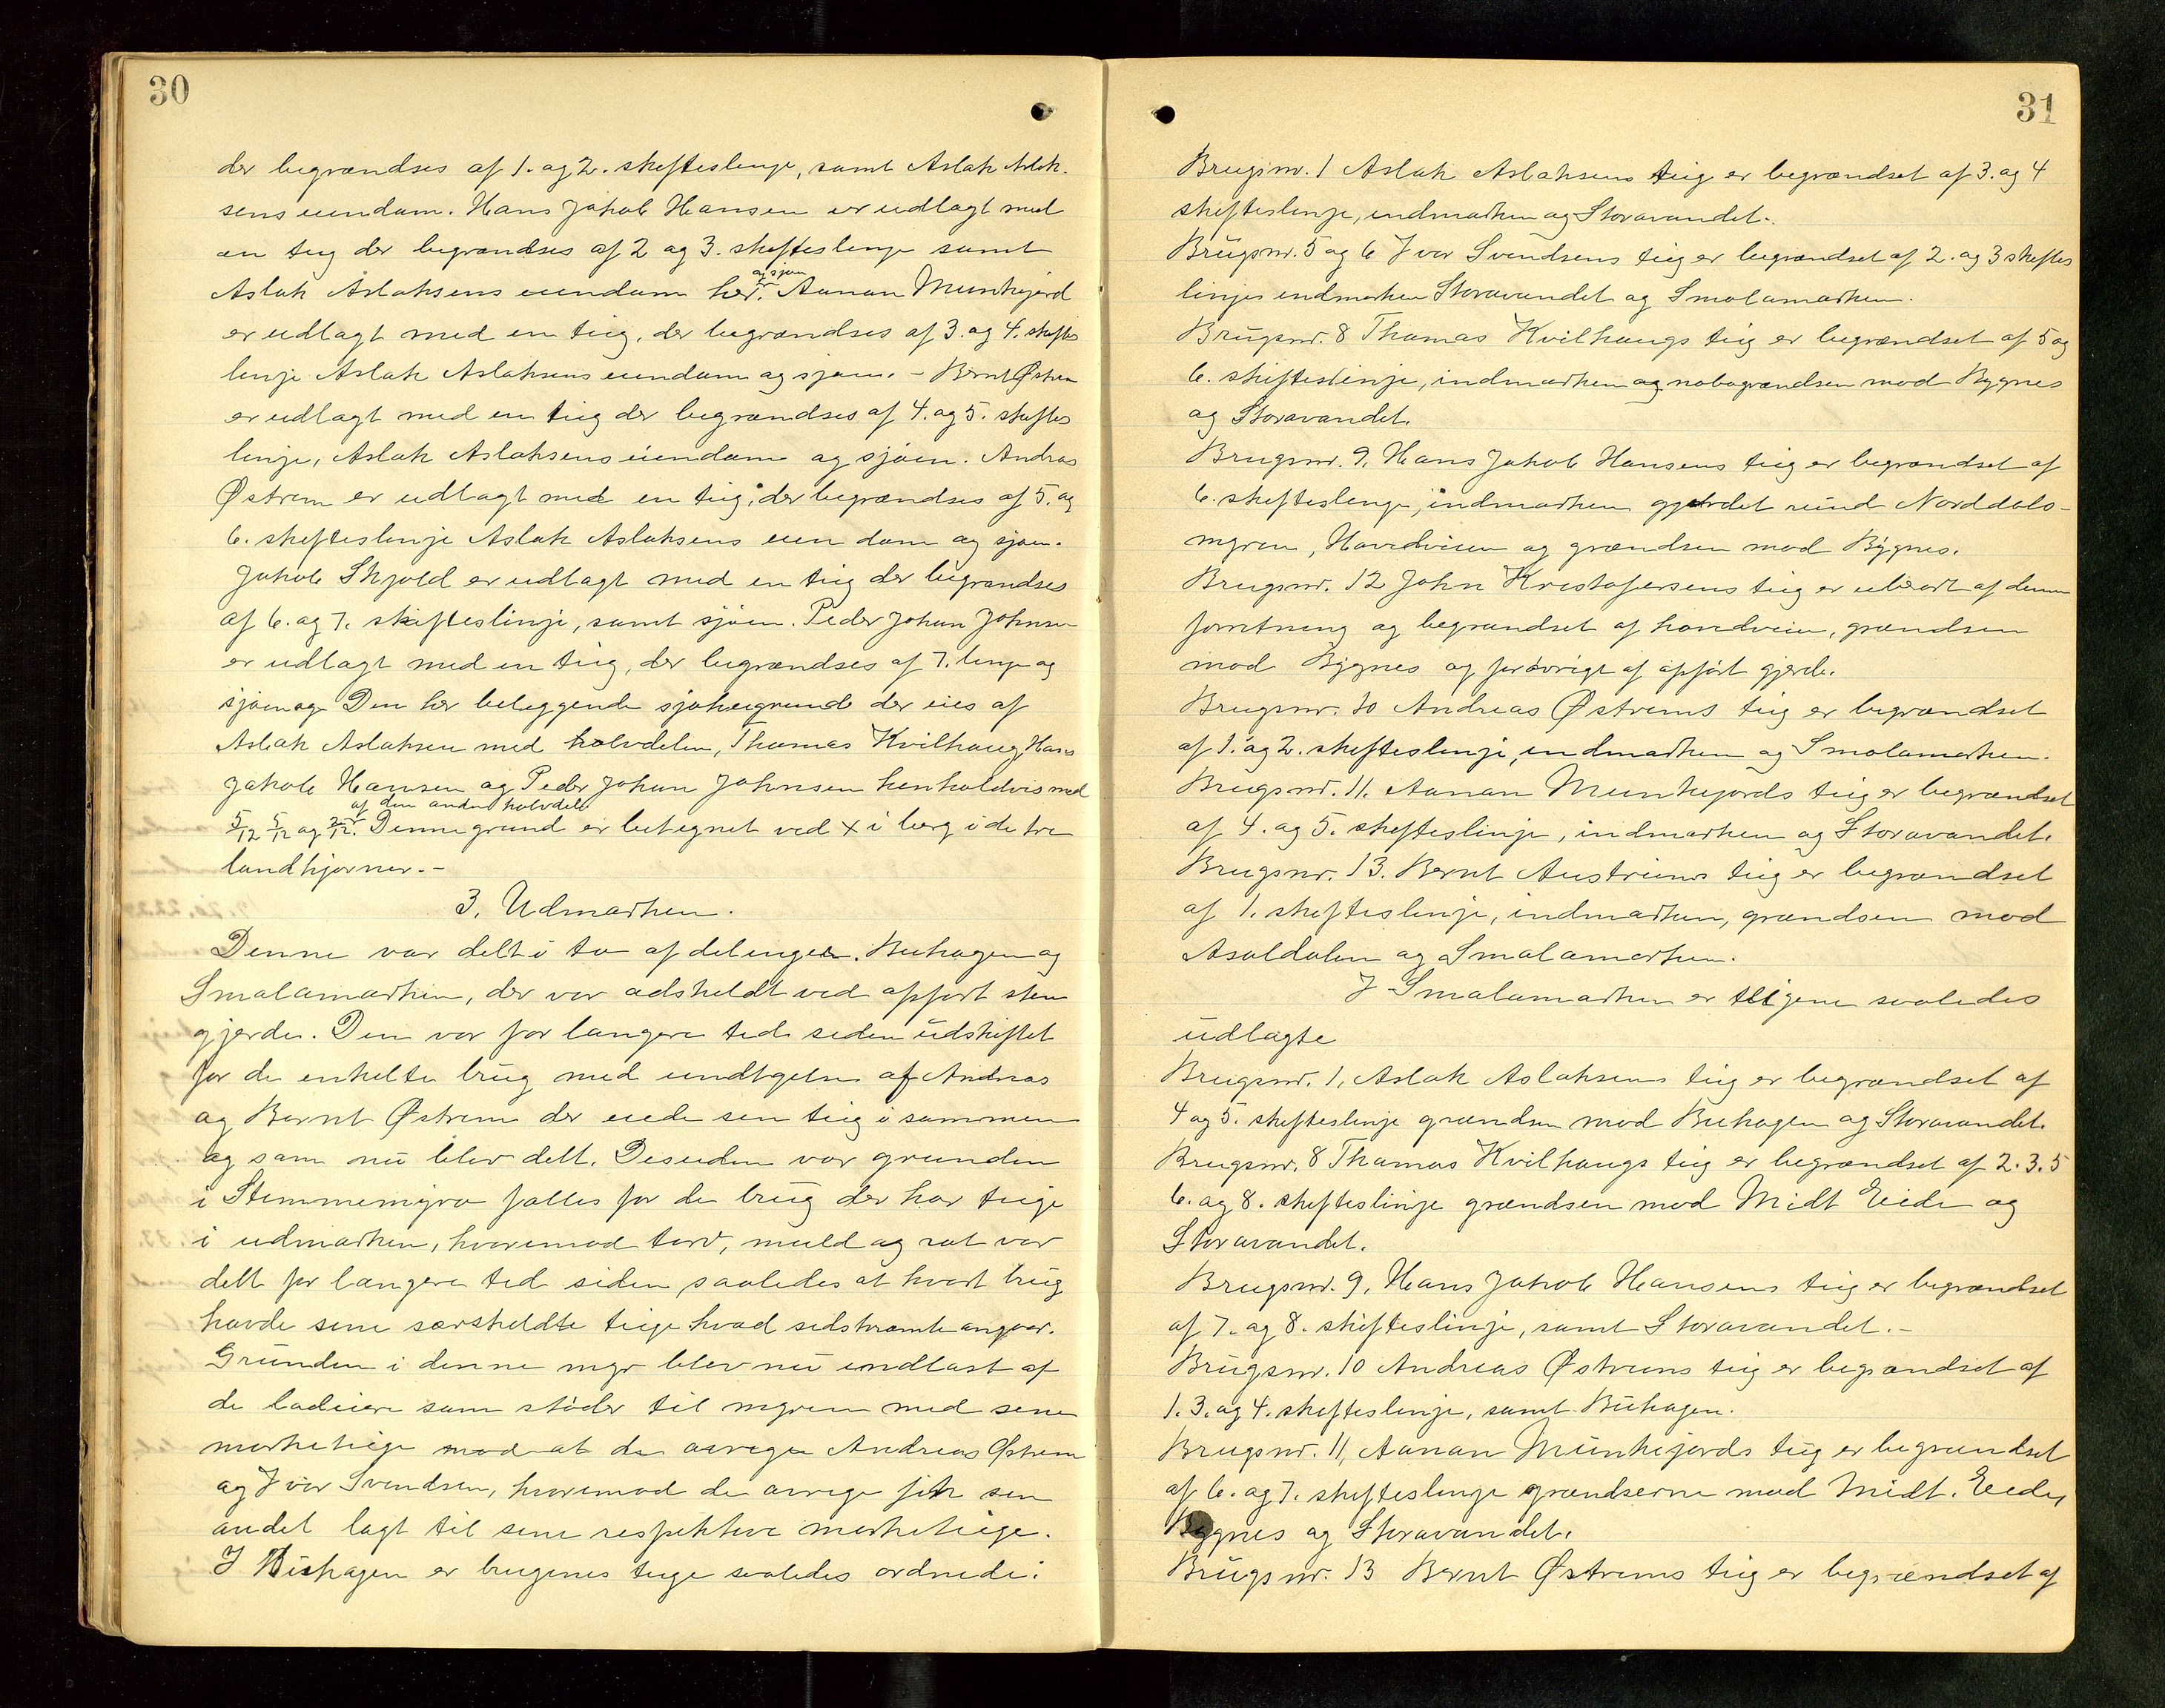 30
der begrændses af 1. og 2. skifteslinje, samt Aslak Aslak-
sens eiendom. Hans Jakob Hansen er udlagt med
en teig der begrændses af 2 og 3. skifteslinje samt
Aslak Aslaksens eiendom her. og sjøen Aanan Munkejord
er udlagt med en teig, der begrændses af 3. og 4. skiftes
linje Aslak Aslaksens eiendom og sjøen. - Bernt Østrem
er udlagt med en teig der begrændses af 4. og 5. skiftes
linje, Aslak Aslaksens eiendom og sjøen. Andreas
Østrem er udlagt med en teig, der begrændses af 5. og
6. skifteslinje Aslak Aslaksens eien dom og sjøen.
Jakob Skjold er udlagt med en teig der begrændses
af 6. og 7. skifteslinje, samt sjøen. Peder Johan Johnsen
er udlagt med en teig, der begrændses af 7. linje og
sjøen og Den her beliggende sjøhusgrund der eies af
Aslak Aslaksen med halvdelen, Thomas Kvilhaug Hans
Jakob Hansen og Peder Johan Johnsen henholdvis med
5/12 5/12 og 2/12. af den anden halvdel. Denne grund er betegnet ved x i berg i de tre
landhjørner. -
3. Udmarken.
Denne var delt i to afdelinger. Buhagen og
Smalamarken, der var adskeldt ved opført sten
gjerde. Den var for længere tid siden udskiftet
for de enkelte brug med undtgelse af Andreas
og Bernt Østrem der eiede sin teig i sammen
og som nu blev delt. Desuden var grunden
i Stemmemyra fælles for de brug der har teige
i udmarken, hvorimod torv, muld og rat var
delt for længere tid siden saaledes at hvert brug
havde sine særskeldte teige hvad sidstnævnte angaar.
Grunden i denne myr blev nu indløst af
de lodeiere som støder til myren med sine
marketeige mod at de avregn Andreas Østrem
og Ivar Svendsen, hvorimod de øvrige fik sin
andel lagt til sine respektive marketeige.
I Buhagen er brugenes teige saaledes ordnede:
31
Brugsnr. 1 Aslak Aslaksens teig er begrændset af 3. og 4
skifteslinje, indmarken og Storavandet.
Brugsnr. 5 og 6 Ivar Svendsens teig er begrændset af 2. og 3 skiftes
linjer indmarken Storavandet og Smalamarken.
Brugsnr. 8 Thomas Kvilhaugs teig er begrændset af 5 og
6. skifteslinje, indmarken og nabogrændsen mod Bygnes
og Storavandet.
Brugsnr. 9, Hans Jakob Hansens teig er begrændset af
6. skifteslinje, indmarken gjerdet rund Norddals-
myren, Hovedveien og grændsen mod Bygnes.
Brugsnr. 12 John Kristofersens teig er uberørt af denne
forretning og begrændset af hovedveien, grændsen
mod Bygnes og forøvrigt af opført gjerde.
Brugsnr. 10 Andreas Østrems teig er begrændset
af 1. og 2. skifteslinje, indmarken og Smalamarken.
Brugsnr. 11. Aanan Munkejords teig er begrændset
af 4. og 5. skifteslinje, indmarken og Storavandet.
Brugsnr. 13. Bernt Austrems teig er begrændset
af 1. skifteslinje, indmarken, grændsen mod
Asaldalen og Smalamarken.
I Smalamarken er teigene saaledes
udlagte
Brugsnr. 1, Aslak Aslaksens teig er begrændset af
4 og 5. skifteslinje grændsen mod Buhagen og Storavandet.
Brugsnr. 8 Thomas Kvilhaugs teig er begrændset af 2. 3. 5
6. og 8. skifteslinje grændsen mod Midt Eide og
Storavandet.
Brugsnr. 9, Hans Jakob Hansens teig er begrændset
af 7. og 8. skifteslinje, samt Storavandet. -
Brugsnr. 10 Andreas Østrems teig er begrændset af
1. 3. og 4. skifteslinje, samt Buhagen.
Brugsnr. 11, Aanan Munkejords teig er begrændset
af 6. og 7. skifteslinje grændserne mod Midt. Eide,
Bygnes og Storavandet.
Brugsnr. 13 Bernt Østrems teig er begrændset af